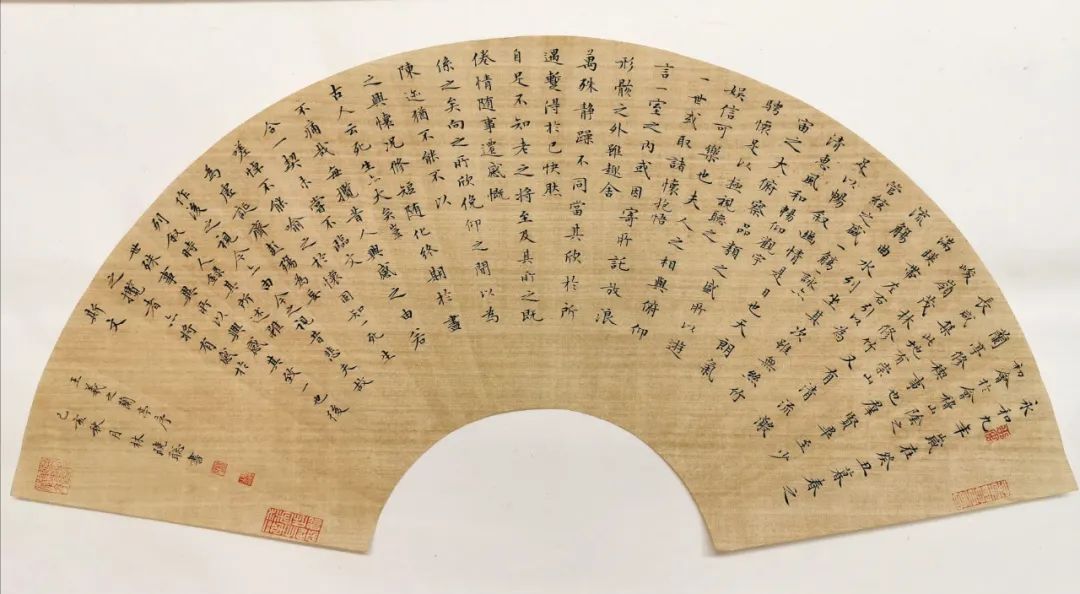 永和九年歲在癸丑暮春之
初會於會稽山陰之
蘭亭修禊事也群賢畢至少
長咸集此地有崇山
峻領茂林修竹又有清流激
湍暎帶左右引以為
流觴曲水列坐其次雖無絲竹
管絃之盛一觴一詠亦
足以暢叙幽情是日也天朗氣
清惠風和暢仰觀宇
宙之大俯察品類之盛所以遊
騁懷足以極視聽之
娛信可樂也夫人之相與俯仰
一世或取諸懷抱悟
言一室之內或因寄所託放浪
形骸之外雖趣舍
萬殊静躁不同當其欣於所
遇蹔得於己快然
自足不知老之將至及其所之既
倦情随事遷感慨
係之矣向之所欣俛仰之間以為
陳迹猶不能不以
之興懷況修短随化終期於盡
古人云死生亦大矣豈
不痛哉每攬昔人興感之由若
合一契未嘗不臨文
嗟悼不能喻之於懷固知一死生
為虛誕齊彭殤為妄
作後之視今亦由今之視昔悲夫故
列叙時人錄其所述雖
世殊事異所以興懷其致一也後
之攬者亦將有感於
斯文
王羲之蘭亭序
己亥秋月林曉聰書